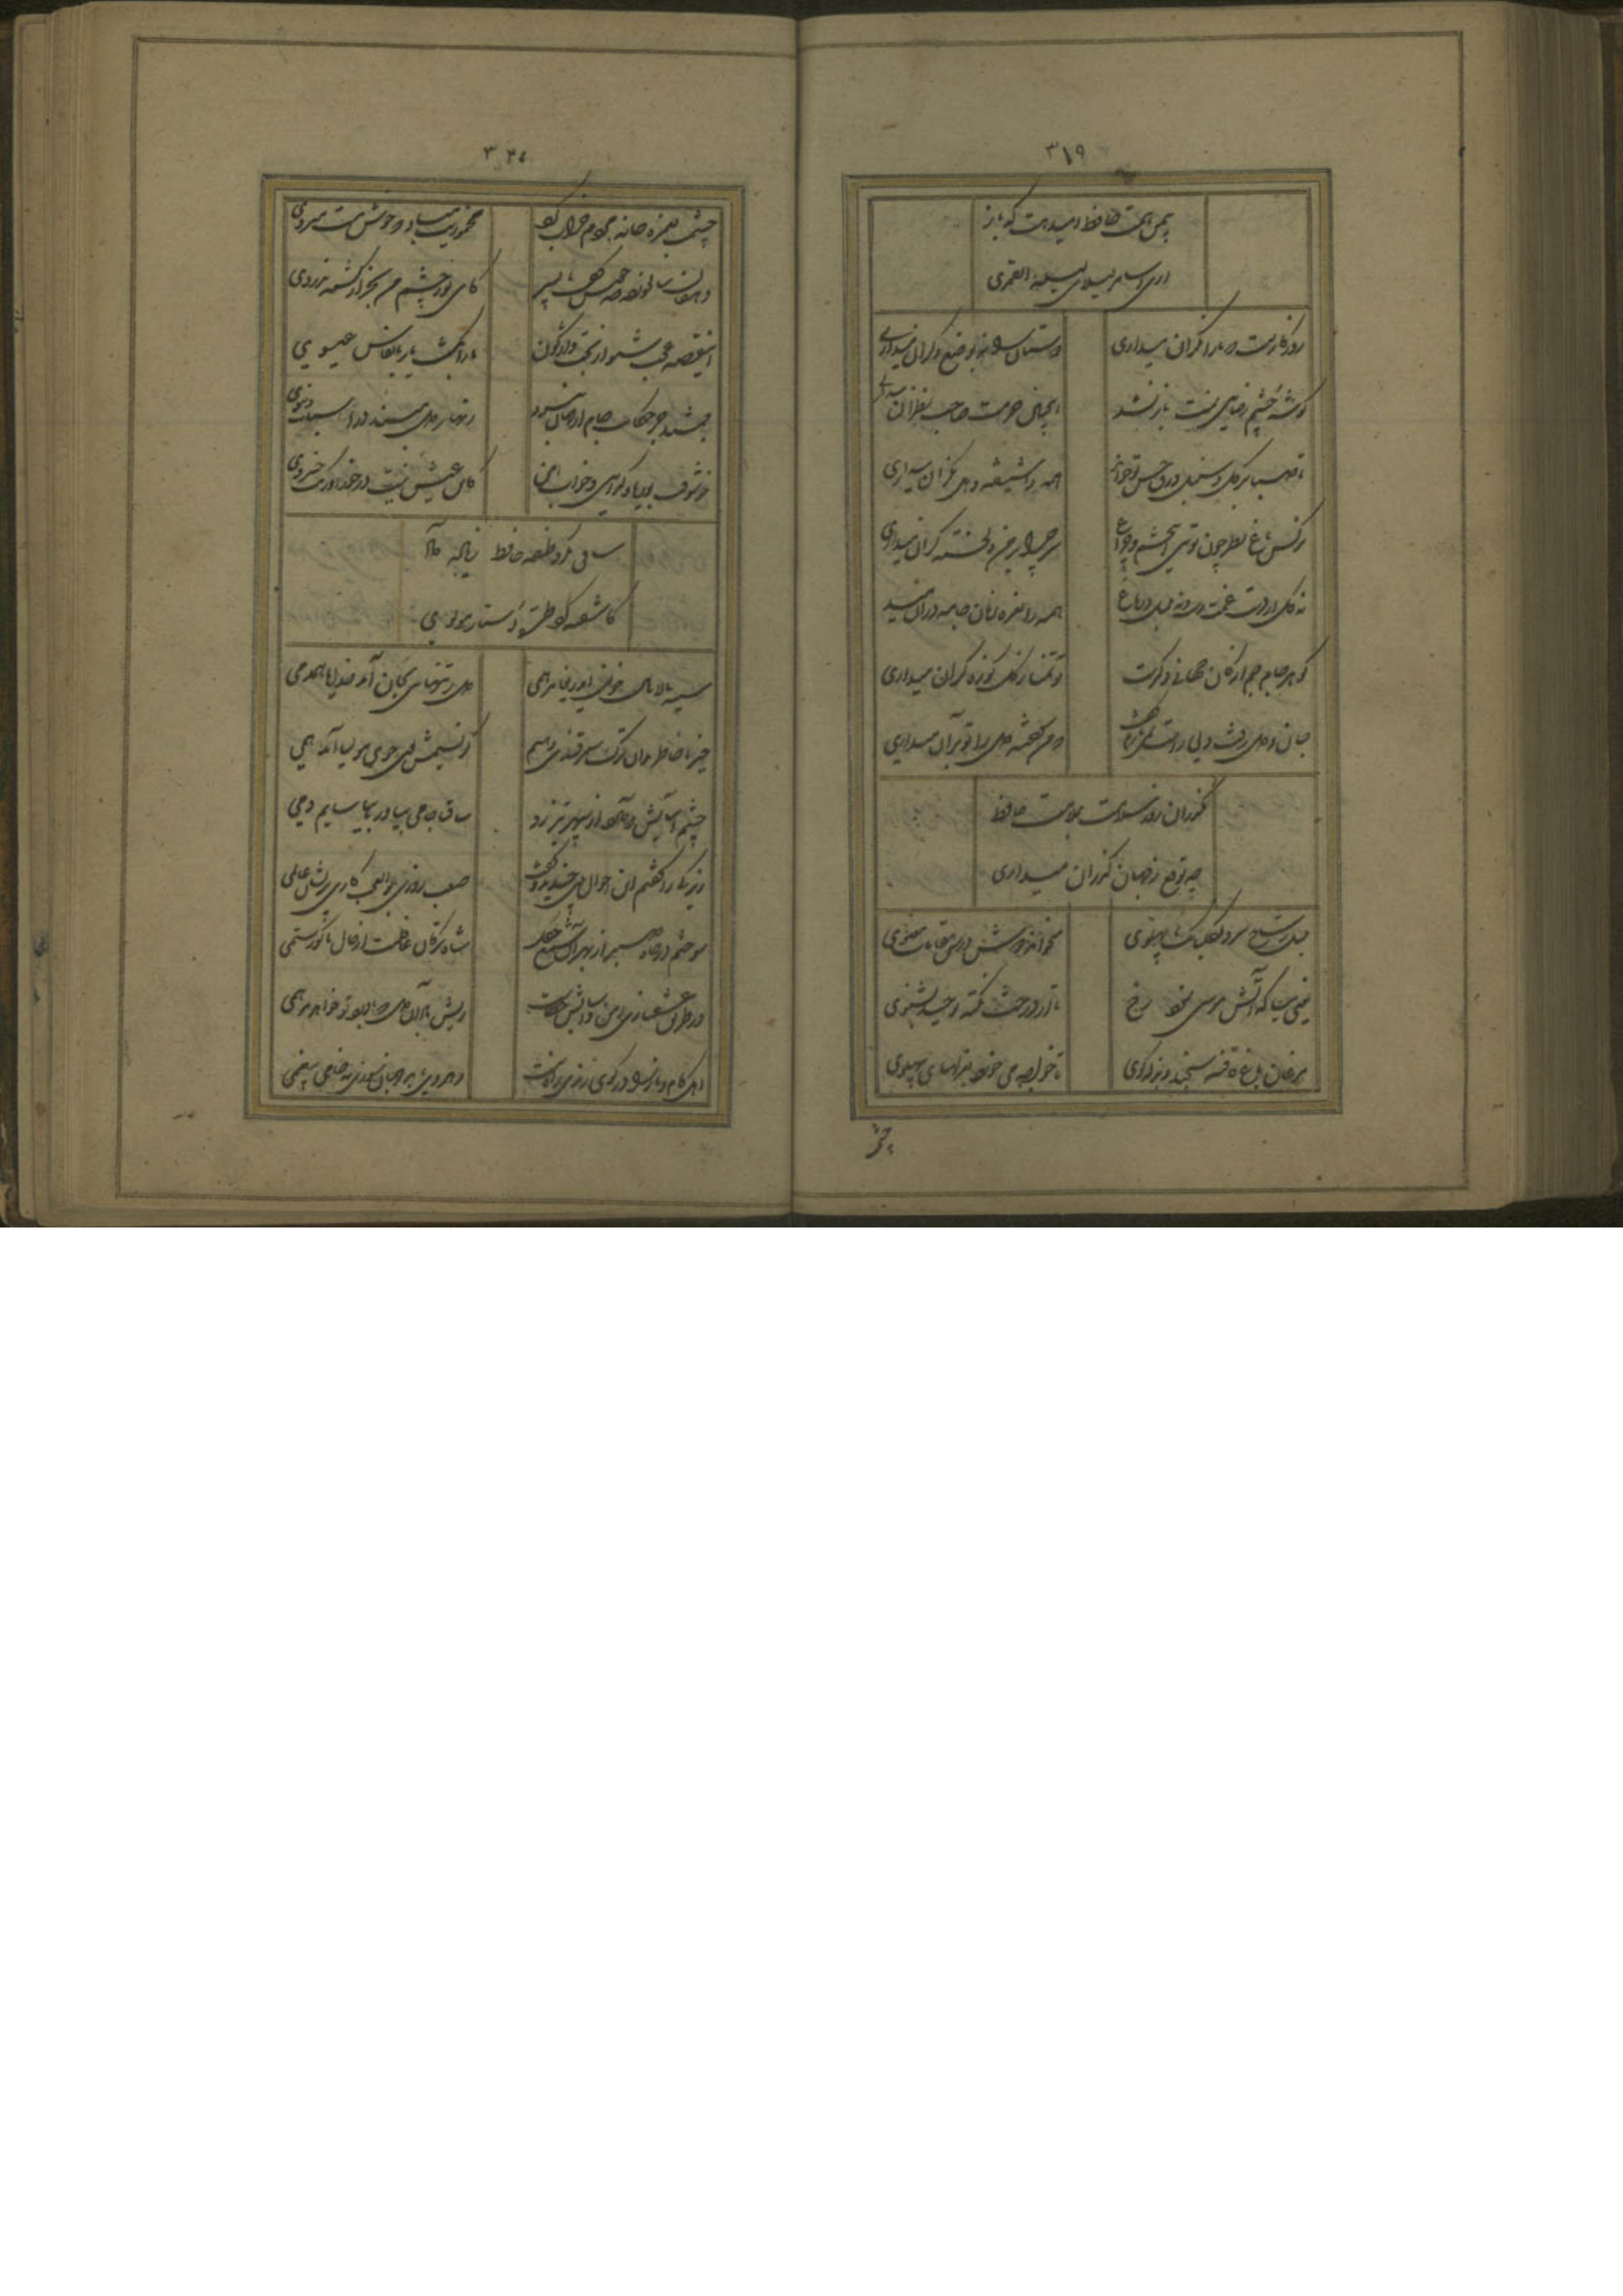 ۳۱۹
بیمن همت حافظ امید هست که باز
اری اسامر لیلای لیلة القمری
روزگاریست که ما را نگران میداری دوستان را نه بوضع دگران میداری
گوشه چشم رضایی بمنت باز نشد اینچنین حرمت صاحب نظران میداری
تا صبا بر گل و سنبل ورق حسن تو خواند همه را شیفته و دل نگران میداری
نرگس باغ نظر چون تویی ای چشم و چراغ سر چرا بر من دلخسته گران میداری
نه گل از دست غمت رست و نه بلبل در باغ همه را نعره زنان جامه دران میداری
گوهر جام جم از کان جهانی دگرست تو تمنا ز گل کوزه گران میداری
جان و دل رفت ولی راست
گذران روز سلامت بملامت حافظ
چه توقع ز جهان گذران میداری
بلبل ز شاخ سرو بگلبانک پهلوی میخواند دوش درس مقامات معنوی
یعنی بیا که آتش موسی نمود رخ تا از درخت نکته توحید بشنوی
مرغان باغ قافیه سنجند و بذله گوی تا خواجه می خورد بغزلهای پهلوی
چشم
۳۲۰
چشمت بغمزه خانه مردم خراب کرد مخموریت مباد که خوش مست میروی
دهقان سالخورده چه خوش گفت با پسر کای نور چشم من بجز از کشته ندروی
این قصه عجب شنو از بخت واژگون ما را بکشت یار بانفاس عیسوی
جمشید جز حکایت جام از جهان نبرد زنهار دل مبند در اسباب دنیوی
خوش وقت بوریا و گدایی و خواب امن کاین عیش نیست درخور اورنک خسروی
ساقی مگر وظیفه حافظ زیاده داد
کاشفته گشت طره دستار مولوی
سینه مالامال دردست ای دریغا مرهمی دل ز تنهایی بجان آمد خدایا همدمی
خیز تا خاطر بدان ترک سمرقندی دهیم کز نسیمش بوی جوی مولیان آید همی
چشم آسایش که دارد از سپهر تیز رو ساقیا جامی بیاور تا بیاسایم دمی
زیرکی را گفتم این احوال بین خندید و گفت صعب روزی بوالعجب کاری پریشان عالمی
سوختم در چاه صبر از بهر آن شمع چگل شاه ترکان غافلست از حال ما کو رستمی
در طریق عشقبازی امن و آسایش خطاست ریش باد آن دل که با درد تو خواهد مرهمی
اهل کام و ناز را در کوی رندی راه نیست رهروی باید جهان سوزی نه خامی بیغمی